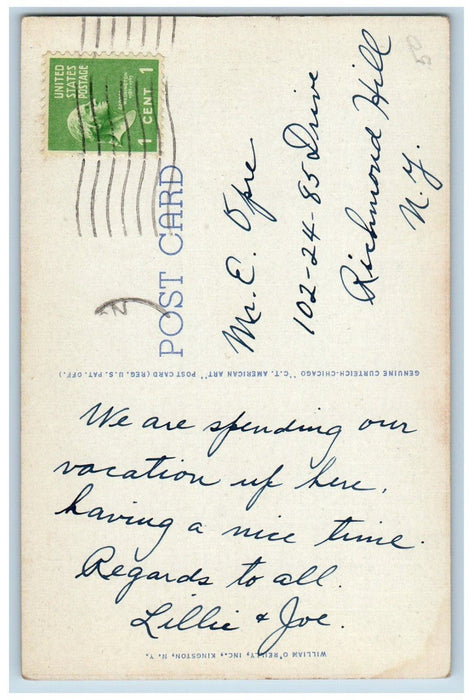 UNITED
STATES
POSTAGE
1 CENT 1
POST CARD
50
Mr. E. Opre
102-24-85 Drive
Richmond Hill
N.Y.
GENUINE CURTEICH-CHICAGO "C.T. AMERICAN ART" POST CARD (REG. U.S. PAT. OFF.)
We are spending our
vacation up here,
having a nice time.
Regards to all.
Lillie & Joe.
WILLIAM O'REILLY, INC., KINGSTON, N. Y.